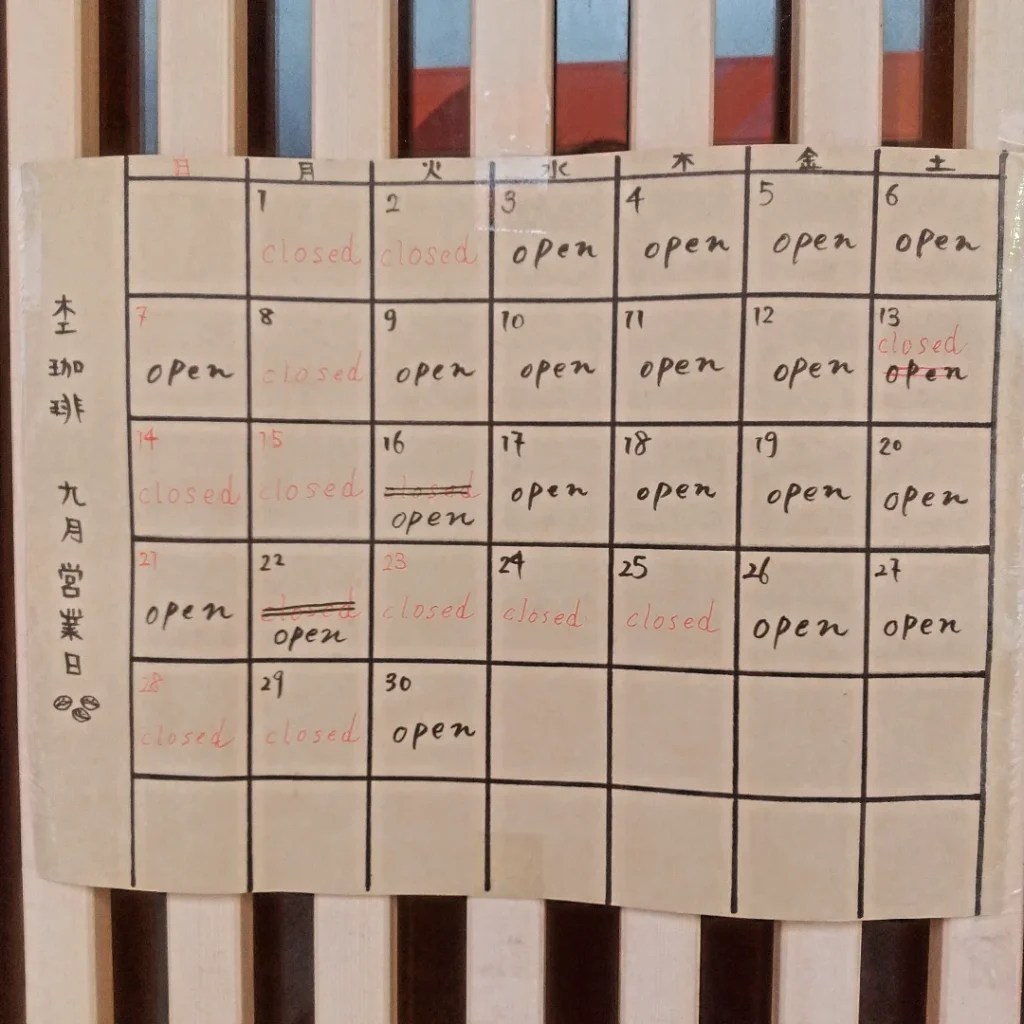 日 月 火 水 木 金 土
1 2 3 4 5 6
closed closed open open open open
7 8 9 10 11 12 13
closed
open closed open open open open open
14 15 16 17 18 19 20
closed closed closed open open open open
open
21 22 23 24 25 26 27
open closed closed closed closed open open
open
28 29 30
closed closed open
杢珈琲 九月営業日